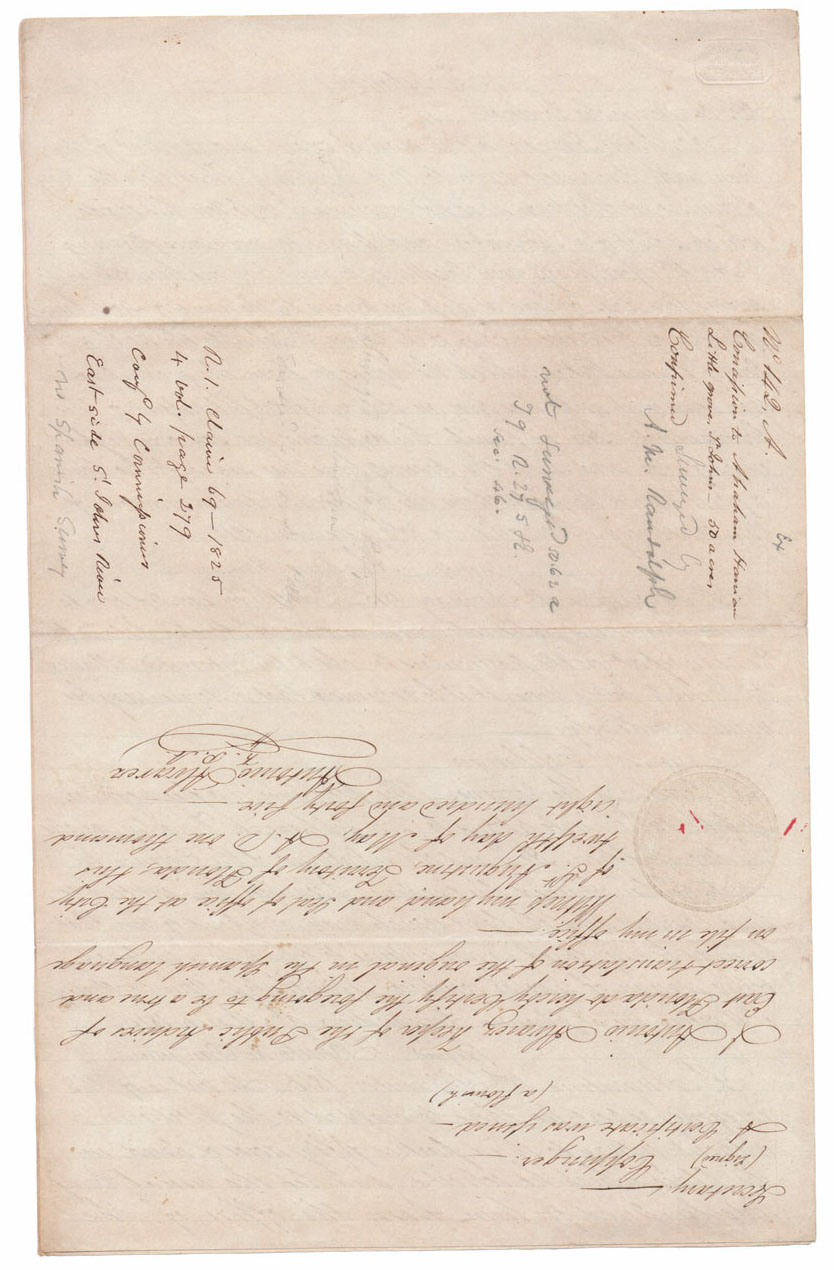 Secretary
(signed) Coppinger. —
A Certificate was issued —
(a flourish)
I Antonio Alvarez, Keeper of the Public Archives of
East Florida do hereby Certify the foregoing to be a true and
correct translation of the original in the Spanish language
on file in my office. —
Witness my hand and Seal of office at the City
of St. Augustine, Territory of Florida, this
twelfth day of May, A.D. one thousand
eight hundred and forty five —
Antonio Alvarez
K. P. A.
Ex
No 142. A.
Concession to Abraham
Little grove, St Johns — 50 acres,
Confirmed Surveyed by
A. M. Randolph
not Surveyed 50.62 a
T 9 R. 27 S &E.
Sec. 46.
R. 1. Claim 69 — 1825
4 vol. page 279
Conf by Commissioners
East side St Johns River
no Spanish Survey